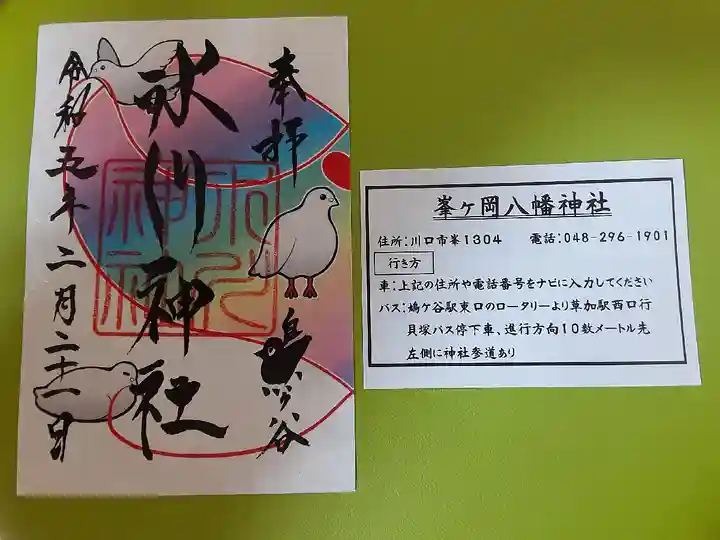 奉拝
鳩ヶ谷
氷川神社
氷川神社
令和五年二月二十一日
峯ヶ岡八幡神社
住所:川口市峯1304　電話:048-296-1901
行き方
車:上記の住所や電話番号をナビに入力してください
バス:鳩ケ谷駅東口のロータリーより草加駅西口行
貝塚バス停下車、進行方向10数メートル先
左側に神社参道あり